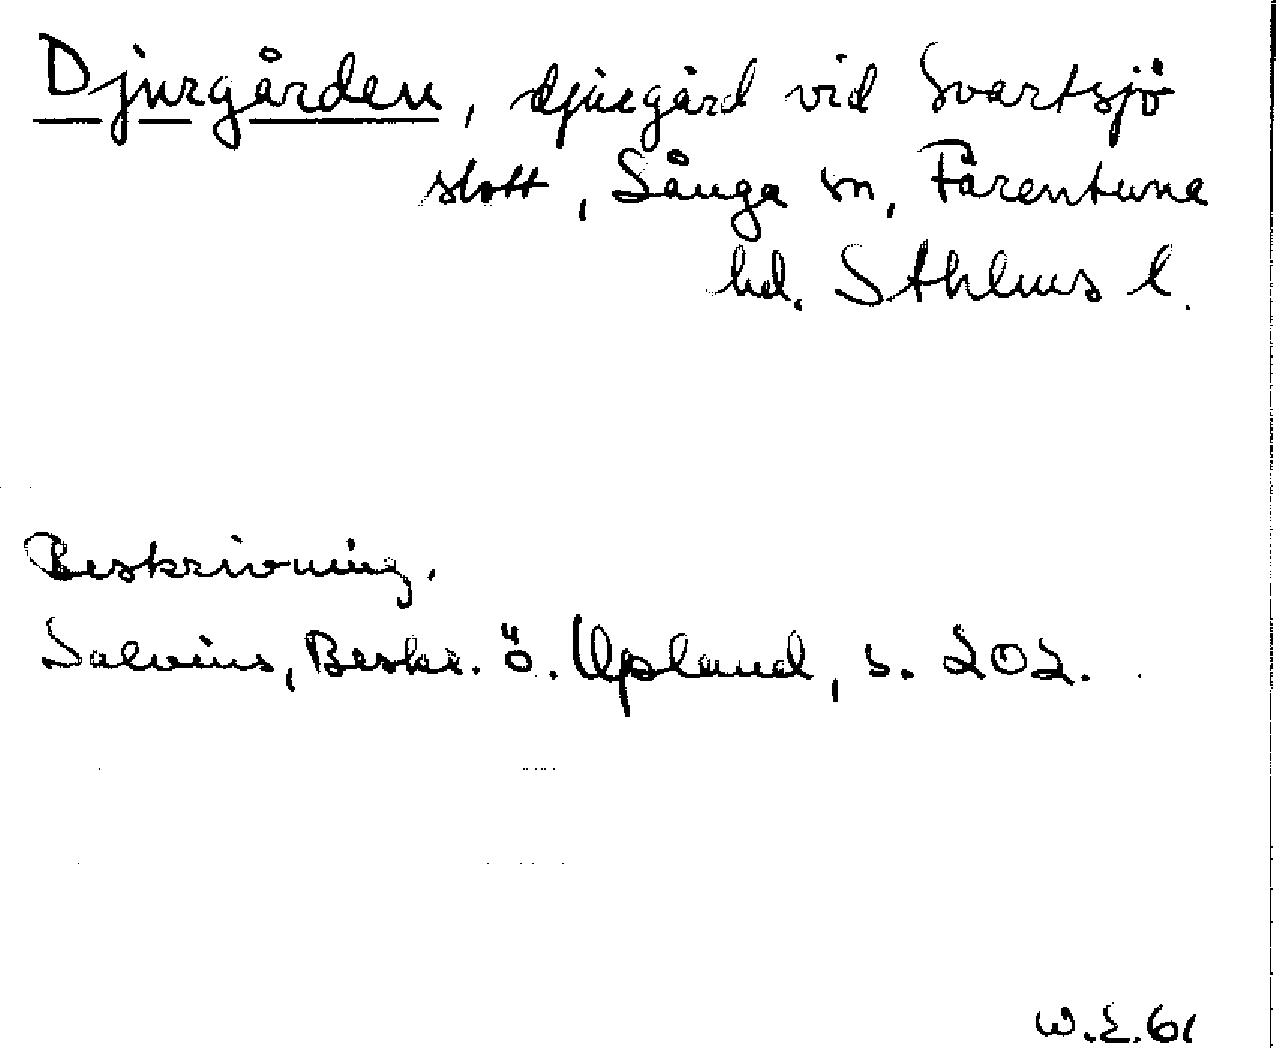 Djurgården, djurgård vid Svartsjö
slott, Sånga sn, Färentuna
hd. Sthlms l.
Beskrivning.
Salvius, Beskr. ö. Upland, s. 202.
W.E.61